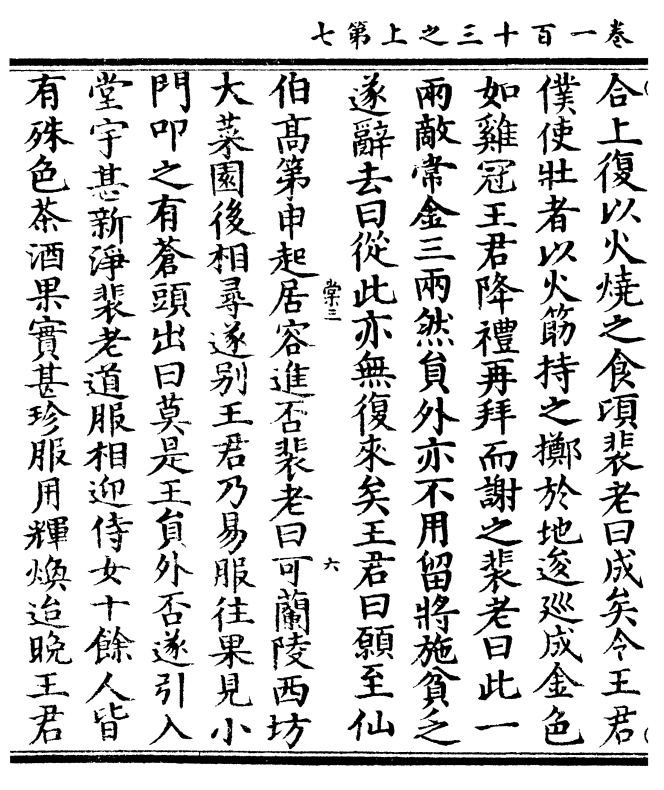 卷一百十三之上第七
合上復以火燒之食頃裴老曰成矣令王君
僕使壯者以火筯持之擲於地逡巡成金色
如雞冠王君降禮再拜而謝之裴老曰此一
兩敵常金三兩然貟外亦不用留將施貧乏
遂辭去曰從此亦無復來矣王君曰願至仙
棠三 六
伯髙第申起居容進否裴老曰可蘭陵西坊
大菜園後相尋遂别王君乃易服往果見小
門叩之有蒼頭出曰莫是王貟外否遂引入
堂宇甚新淨裴老道服相迎侍女十餘人皆
有殊色茶酒果實甚珍服用輝煥迨晚王君